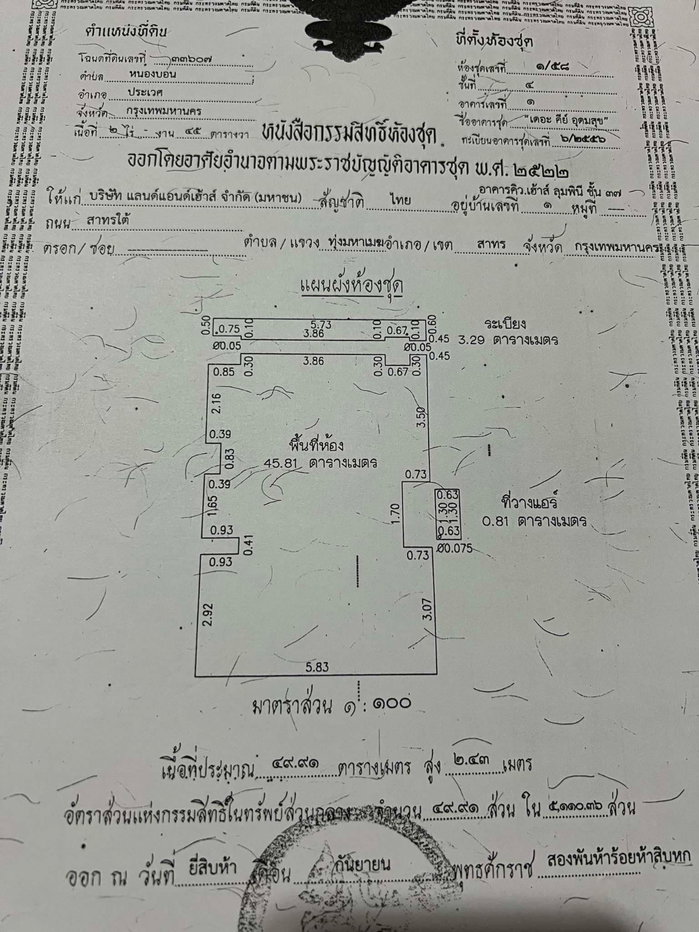 ตำแหน่งที่ดิน
โฉนดที่ดินเลขที่ ๓๓๖๐๗
ตำบล หนองบอน
อำเภอ ประเวศ
จังหวัด กรุงเทพมหานคร
เนื้อที่ ๒ ไร่ - งาน ๔๕ ตารางวา
ที่ตั้งห้องชุด
ห้องชุดเลขที่ ๑/๕๘
ชั้นที่ ๔
อาคารเลขที่ ๑
ชื่ออาคารชุด "เดอะ คีย์ อุดมสุข"
ทะเบียนอาคารชุดเลขที่ ๖/๒๕๕๖
หนังสือกรรมสิทธิ์ห้องชุด
ออกโดยอาศัยอำนาจตามพระราชบัญญัติอาคารชุด พ.ศ. ๒๕๒๒
ให้แก่ บริษัท แลนด์แอนด์เฮ้าส์ จำกัด (มหาชน) สัญชาติ ไทย อยู่บ้านเลขที่ ๑ หมู่ที่ —
อาคารคิว.เฮ้าส์ ลุมพินี ชั้น ๓๗
ถนน สาทรใต้
ตรอก/ซอย ตำบล/แขวง ทุ่งมหาเมฆ อำเภอ/เขต สาทร จังหวัด กรุงเทพมหานคร
แผนผังห้องชุด
0.50 0.75 0.10 5.73 3.86 0.10 0.67 0.10 0.60
ระเบียง
3.29 ตารางเมตร
Ø0.05 Ø0.05 0.45
0.85 0.30 3.86 0.30 0.67 0.30 0.45
2.16 3.50
0.39
พื้นที่ห้อง
45.81 ตารางเมตร
0.83
0.39 0.73
1.65 1.70 0.63 1.30 1.30 0.63
ที่วางแอร์
0.81 ตารางเมตร
0.93 0.41
0.93 0.73 Ø0.075
2.92 3.07
5.83
มาตราส่วน ๑ : ๑๐๐
เนื้อที่ประมาณ ๔๙.๙๑ ตารางเมตร สูง ๒.๔๓ เมตร
อัตราส่วนแห่งกรรมสิทธิ์ในทรัพย์ส่วนกลาง จำนวน ๔๙.๙๑ ส่วน ใน ๕,๑๑๐.๓๖ ส่วน
ออก ณ วันที่ ยี่สิบห้า เดือน กันยายน พุทธศักราช สองพันห้าร้อยห้าสิบหก